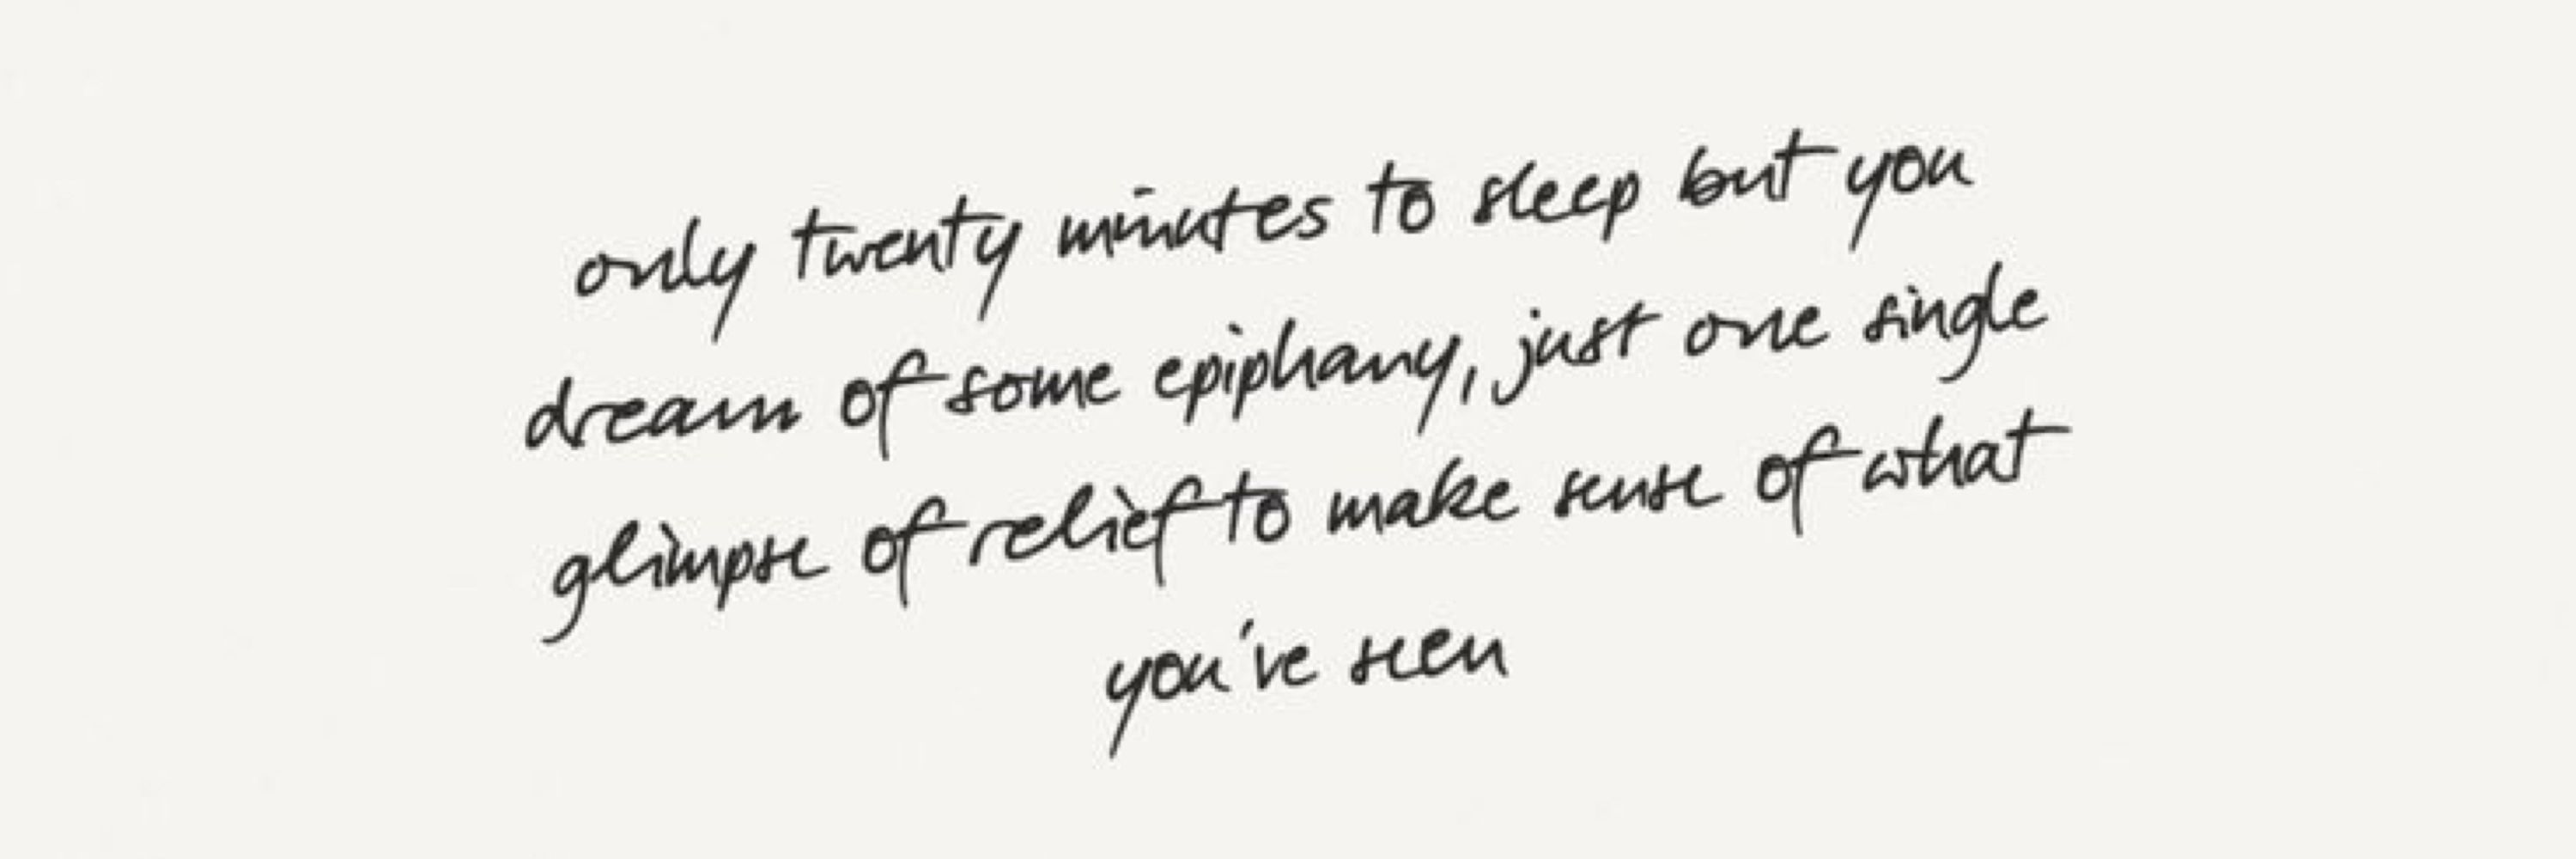 only twenty minutes to sleep but you
dream of some epiphany, just one single
glimpse of relief to make sense of what
you've seen